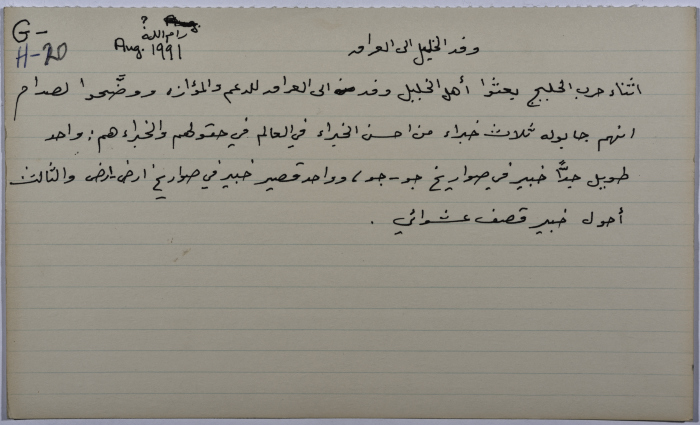 G-
H-20
?
رام الله
Aug. 1991
وفد الخليل الى العراق
اثناء حرب الخليج يعثوا أهل الخليل وفد منه الى العراق للدعم والمؤازه ووضَّحوا لصدام
انهم جابوله ثلاث خبراء من احسن الخبراء في العالم في حقولهم والخبراء هم: واحد
طويل جداً خبير في صواريخ جو-جو، وواحد قصير خبير في صواريخ ارض-ارض والثالث
أحول خبير قصف عشوائي.